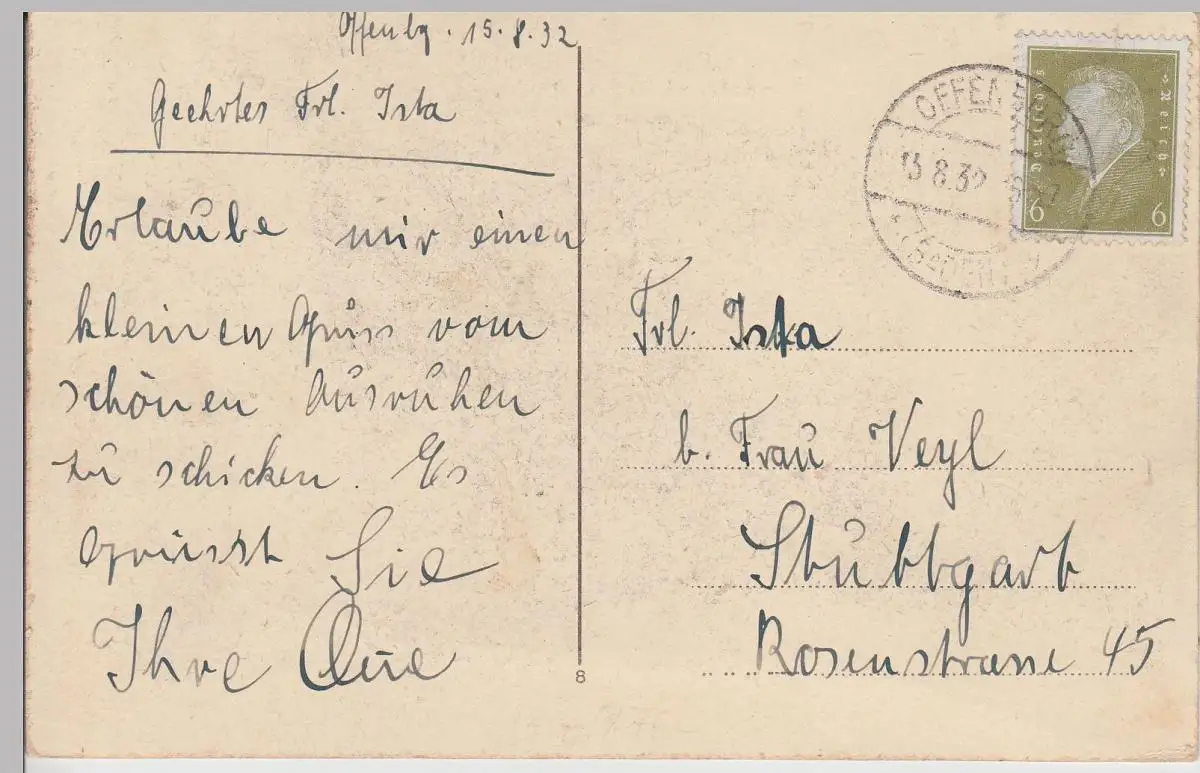 Offenbg. 15.8.32
Geehrtes Frl. Ista
Erlaube mir einen
kleinen Gruss vom
schönen Ausruhen
zu schicken. Es
grüsst Sie
Ihre
OFFENBURG
8.32
(BADEN)
Deutsches Reich
6 6
Frl. Ista
b. Frau Veyl
Stuttgart
Rosenstrasse 45
8